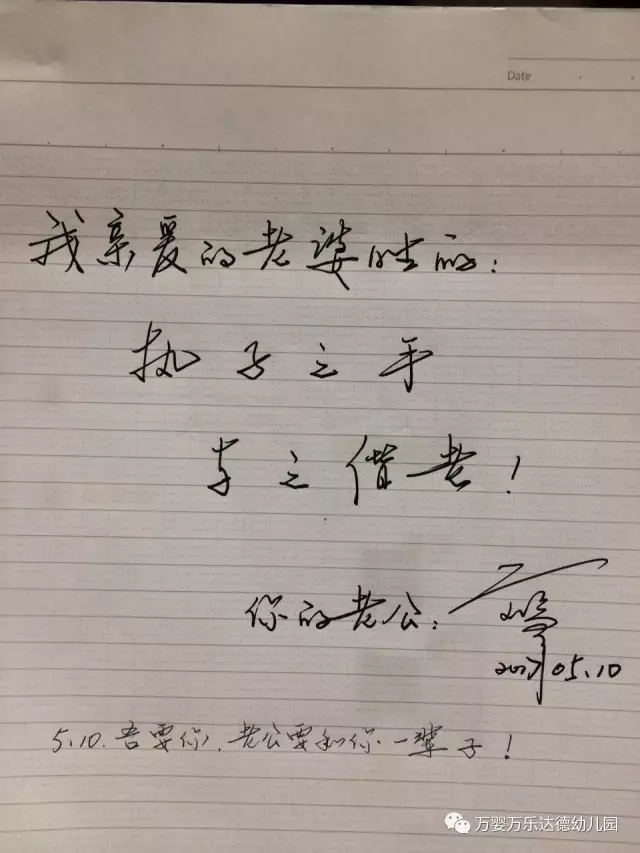 Date
我亲爱的老婆
执子之手
与之偕老！
你的老公：
2017.05.10
5.10.吾要你，老公要和你一辈子！
万婴万乐达德幼儿园